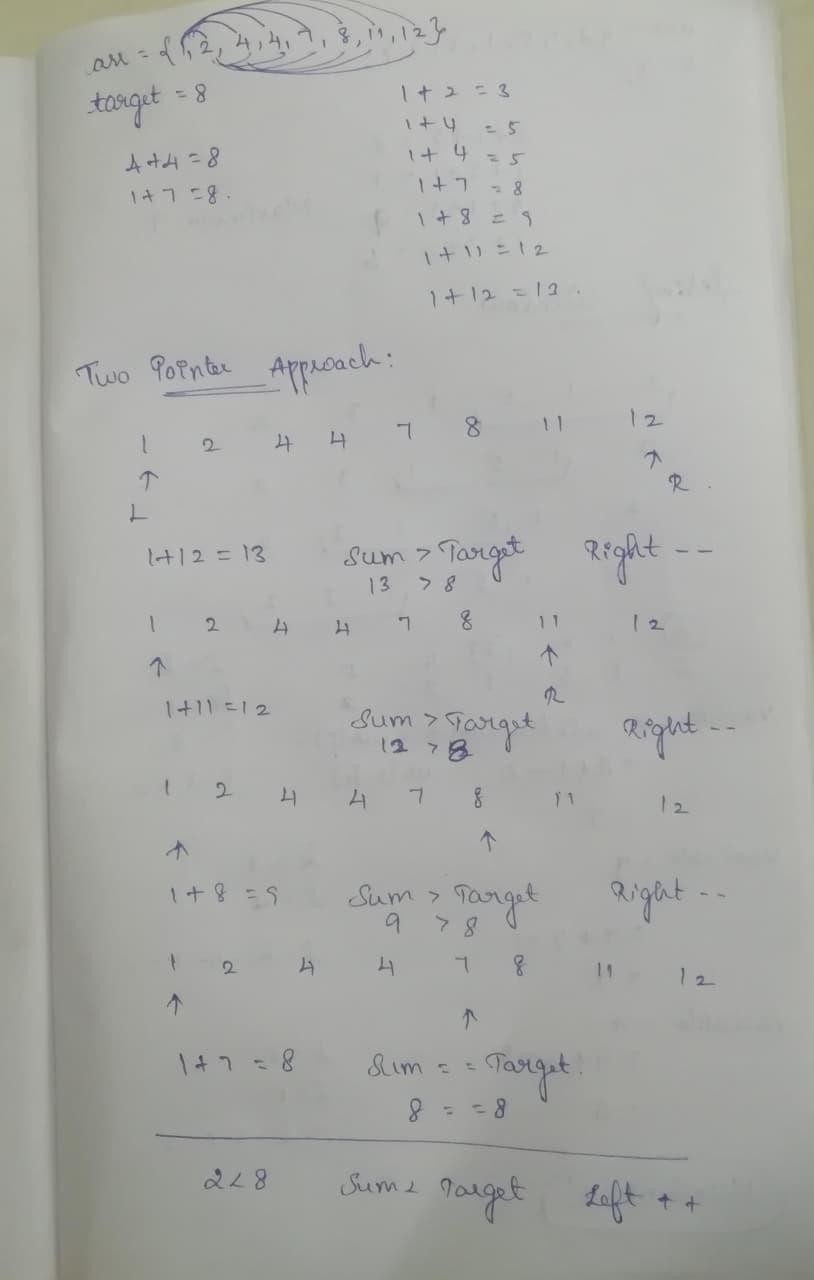 arr = {1, 2, 4, 4, 7, 8, 11, 12}
target = 8
4+4=8
1+7=8.
1+2 = 3
1+4 = 5
1+4 = 5
1+7 = 8
1+8 = 9
1+11 = 12
1+12 = 13.
Two Pointer Approach:
1 2 4 4 7 8 11 12
↑ ↑
L R.
1+12 = 13 Sum > Target Right --
13 > 8
1 2 4 4 7 8 11 12
↑ ↑
R
1+11 = 12 Sum > Target Right --
12 > 8
1 2 4 4 7 8 11 12
↑ ↑
1+8 = 9 Sum > Target Right --
9 > 8
1 2 4 4 7 8 11 12
↑ ↑
1+7 = 8 Sum == Target.
8 == 8
2<8 Sum < Target Left ++